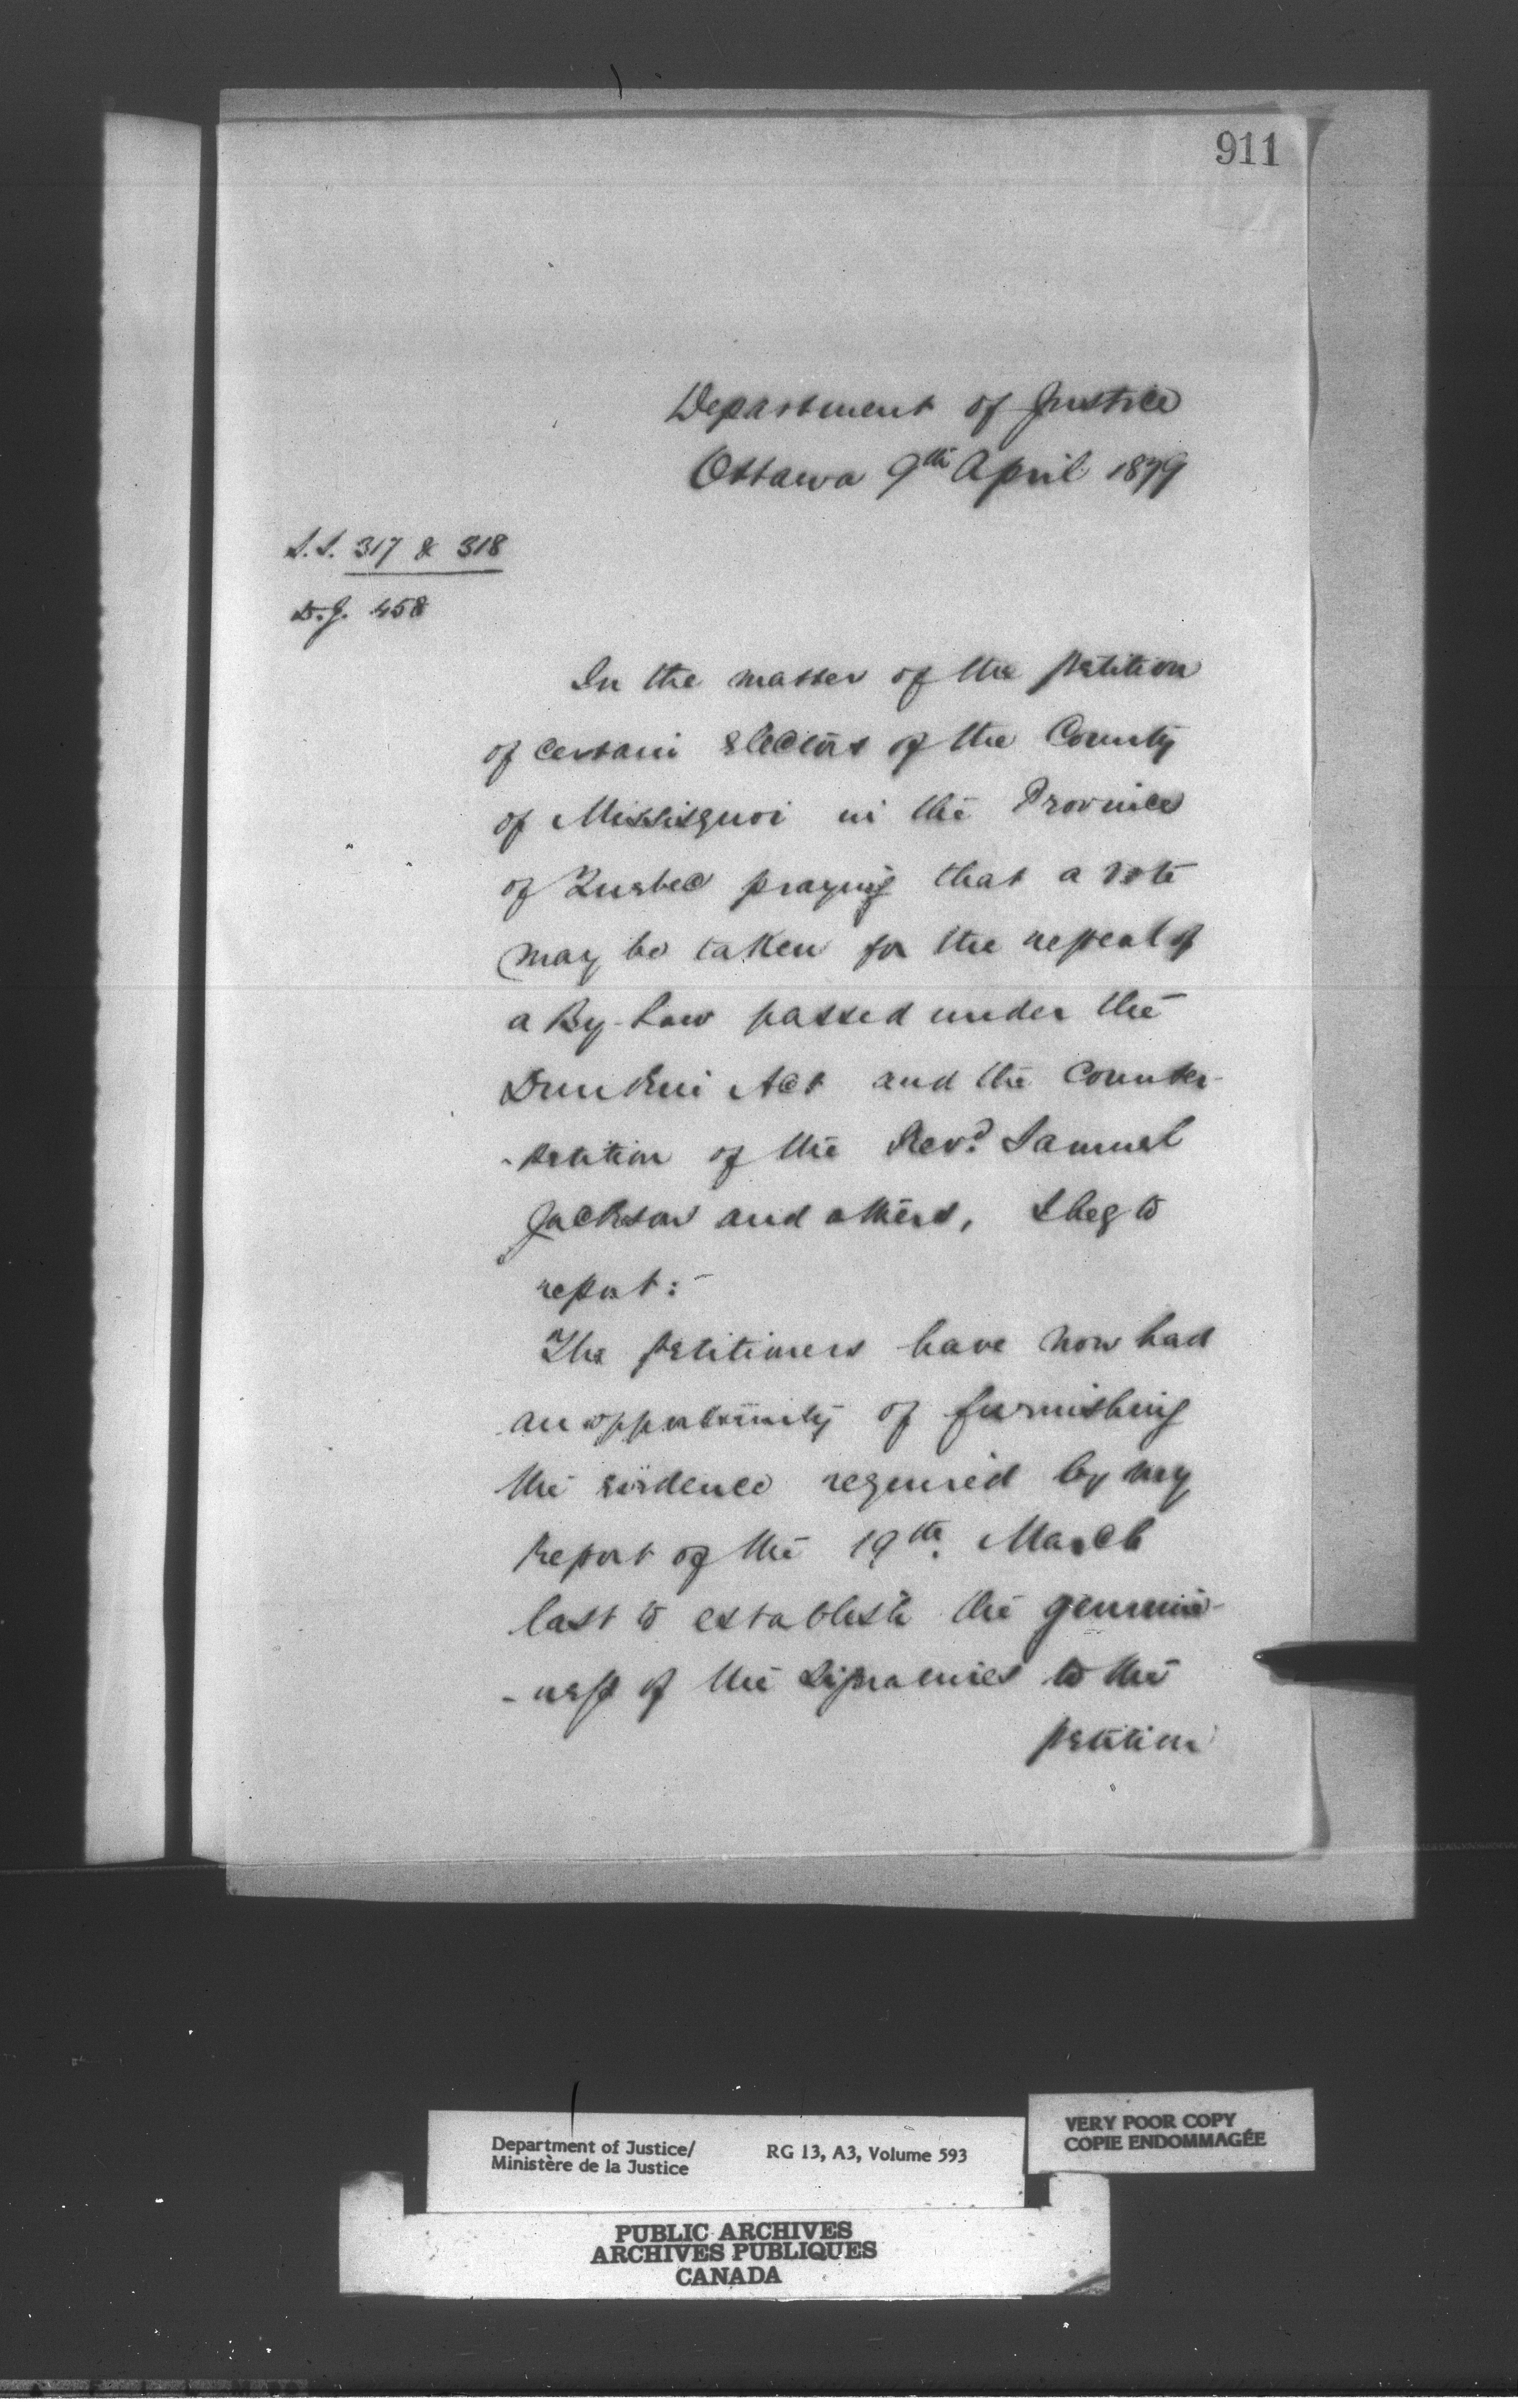 911
Department of Justice
Ottawa 9th April 1879
S.S. 317 & 318
D.J. 458
In the matter of the petition
of certain electors of the County
of Missisquoi in the Province
of Quebec praying that a vote
may be taken for the repeal of
a By-Law passed under the
Dunkin Act and the Counter-
-petition of the Revd. Samuel
Jackson and others, I beg to
report:-
The petitioners have now had
an opportunity of furnishing
the evidence required by my
Report of the 19th. March
last to establish the genuine-
-ness of the signatures to the
petition
Department of Justice/
Ministère de la Justice
RG 13, A3, Volume 593
VERY POOR COPY
COPIE ENDOMMAGÉE
PUBLIC ARCHIVES
ARCHIVES PUBLIQUES
CANADA